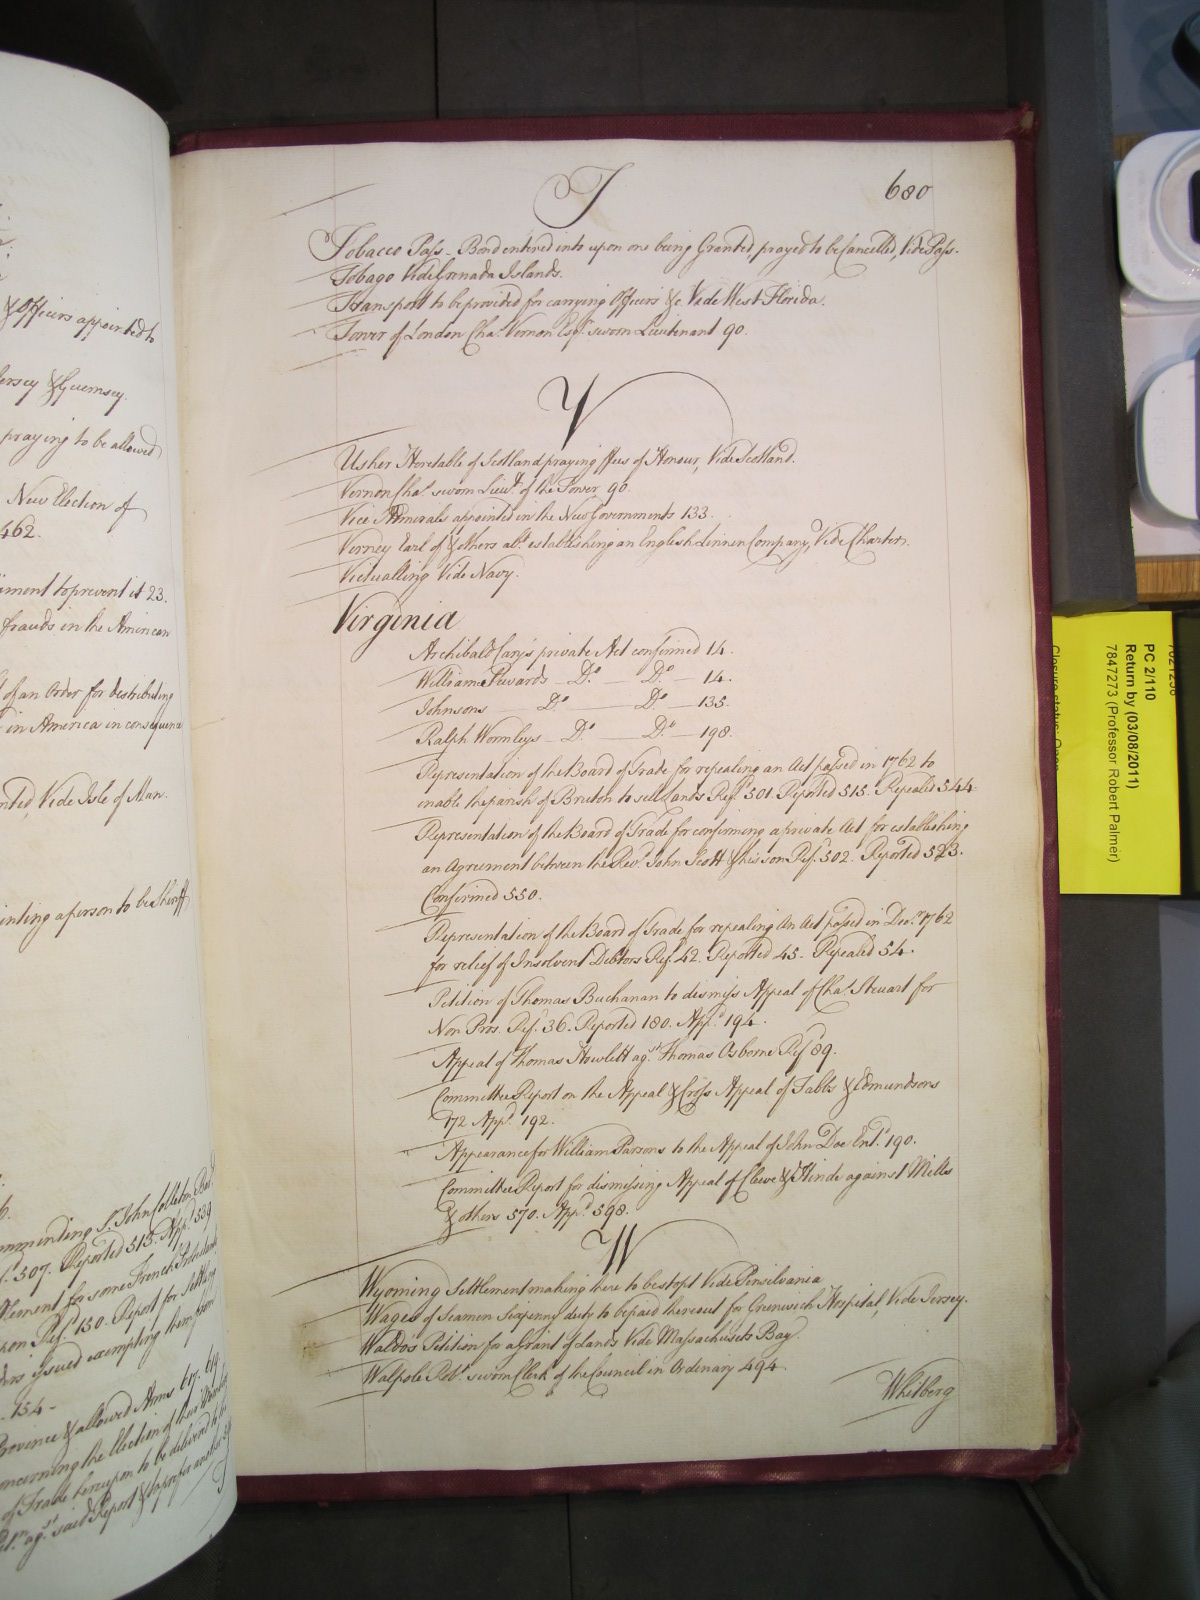 T
680
Tobacco Pass - Bond entered into upon one being Granted, prayed to be Cancelled, Vide Pass.
Tobago Vide Grenada Islands.
Transport to be provided for carrying Officers &c. Vide West Florida.
Tower of London Cha.s Vernon Esq.r sworn Lieutenant 90.
V
Usher Heretable of Scotland praying ffees of Honour, Vide Scotland.
Vernon Cha.s sworn Lieu.t of the Tower 90.
Vice Admirals appointed in the New Governments 133.
Verney Earl of & others ab.t establishing an English Linnen Company, Vide Charters.
Victualling Vide Navy.
Virginia
Archibald Cary's private Act confirmed 14.
William Dewards D.o D.o 14.
Johnsons D.o D.o 135.
Ralph Wormleys D.o D.o 198.
Representation of the Board of Trade for repealing an Act passed in 1762 to
inable the parish of Bruton to sell Lands Ref.d 501. Reported 515. Repealed 544
Representation of the Board of Trade for confirming a private Act for establishing
an Agreement between the Rev.d John Scott & his son Ref. 502. Reported 523.
Confirmed 550.
Representation of the Board of Trade for repealing An Act passed in Dec.r 1762
for relief of Insolvent Debtors Ref. 42. Reported 45. Repealed 54.
Petition of Thomas Buchanan to dismiss Appeal of Cha.s Steuart for
Non Pros. Ref. 36. Reported 180. App.d 194.
Appeal of Thomas Howlett ag.st Thomas Osborne Ref.d 89.
Committee Report on the Appeal & Cross Appeal of Tabbs & Edmundsons
172 App.d 192.
Appearance for William Parsons to the Appeal of John Doe Ent.d 190.
Committee Report for dismissing Appeal of Cleeve & Hinde against Mills
& others 570. App.d 598.
W
Wyoming Settlement making here to be stopt Vide Pensilvania
Wages of Seamen Sixpenny duty to be paid thereout for Greenwich Hospital, Vide Jersey.
Waldos Petition for a Grant of Lands Vide Massachusets Bay.
Walpole Rob.t sworn Clerk of the Council in Ordinary 494.
Whitberg
& Officers appointed to
Jersey & Guernsey.
praying to be allowed
New Election of
462.
to prevent it 23.
frauds in the American
of an Order for distributing
in America in consequence
Vide Isle of Man.
a person to be Sheriff
S.r John Colleton Bar.t
507. Reported 513. App.d 539
for some French Protestants
Ref.d 150. Report for settling
issued exempting them from
154-
Province & allowed Arms 617. 619
concerning the Election of their
of Trade hereupon to be delivered to
ag.st said Report & to prefer another
T
PC 2/110
Return by (03/08/2011)
7847273 (Professor Robert Palmer)
Closure status: Open